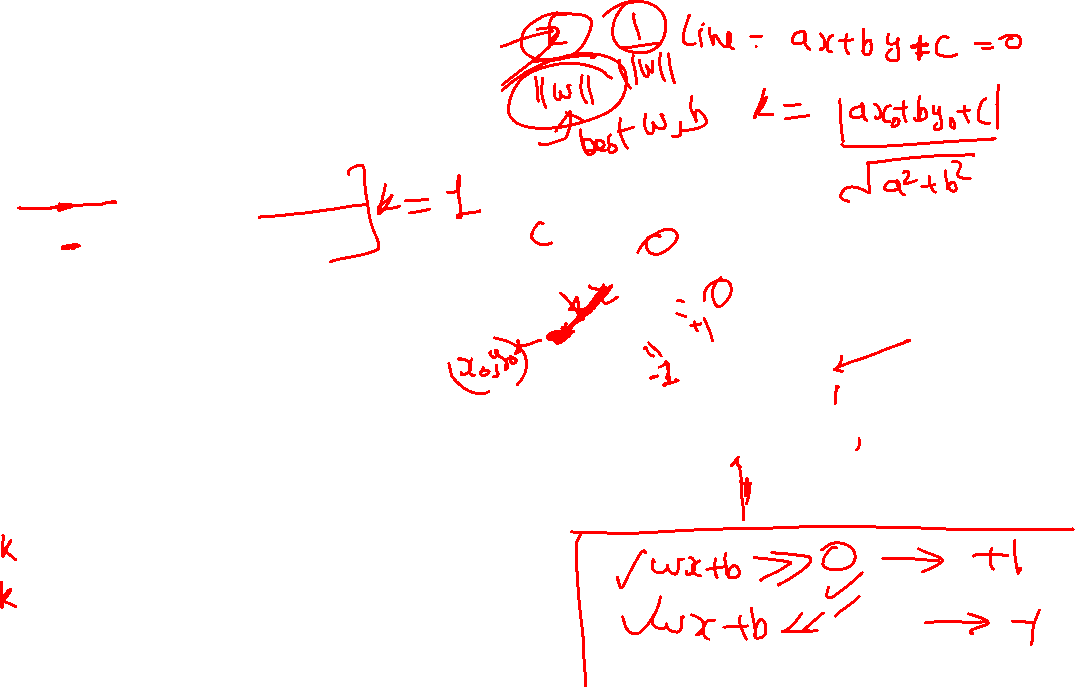 1 Line = ax+by+c = 0
||w|| ||w||
best w,b k = |ax₀+by₀+c|
√a²+b²
k = 1
c 0
= 0
+1
(x₀,y₀) = -1
k wx+b >> 0 → +1
k wx+b << → -1